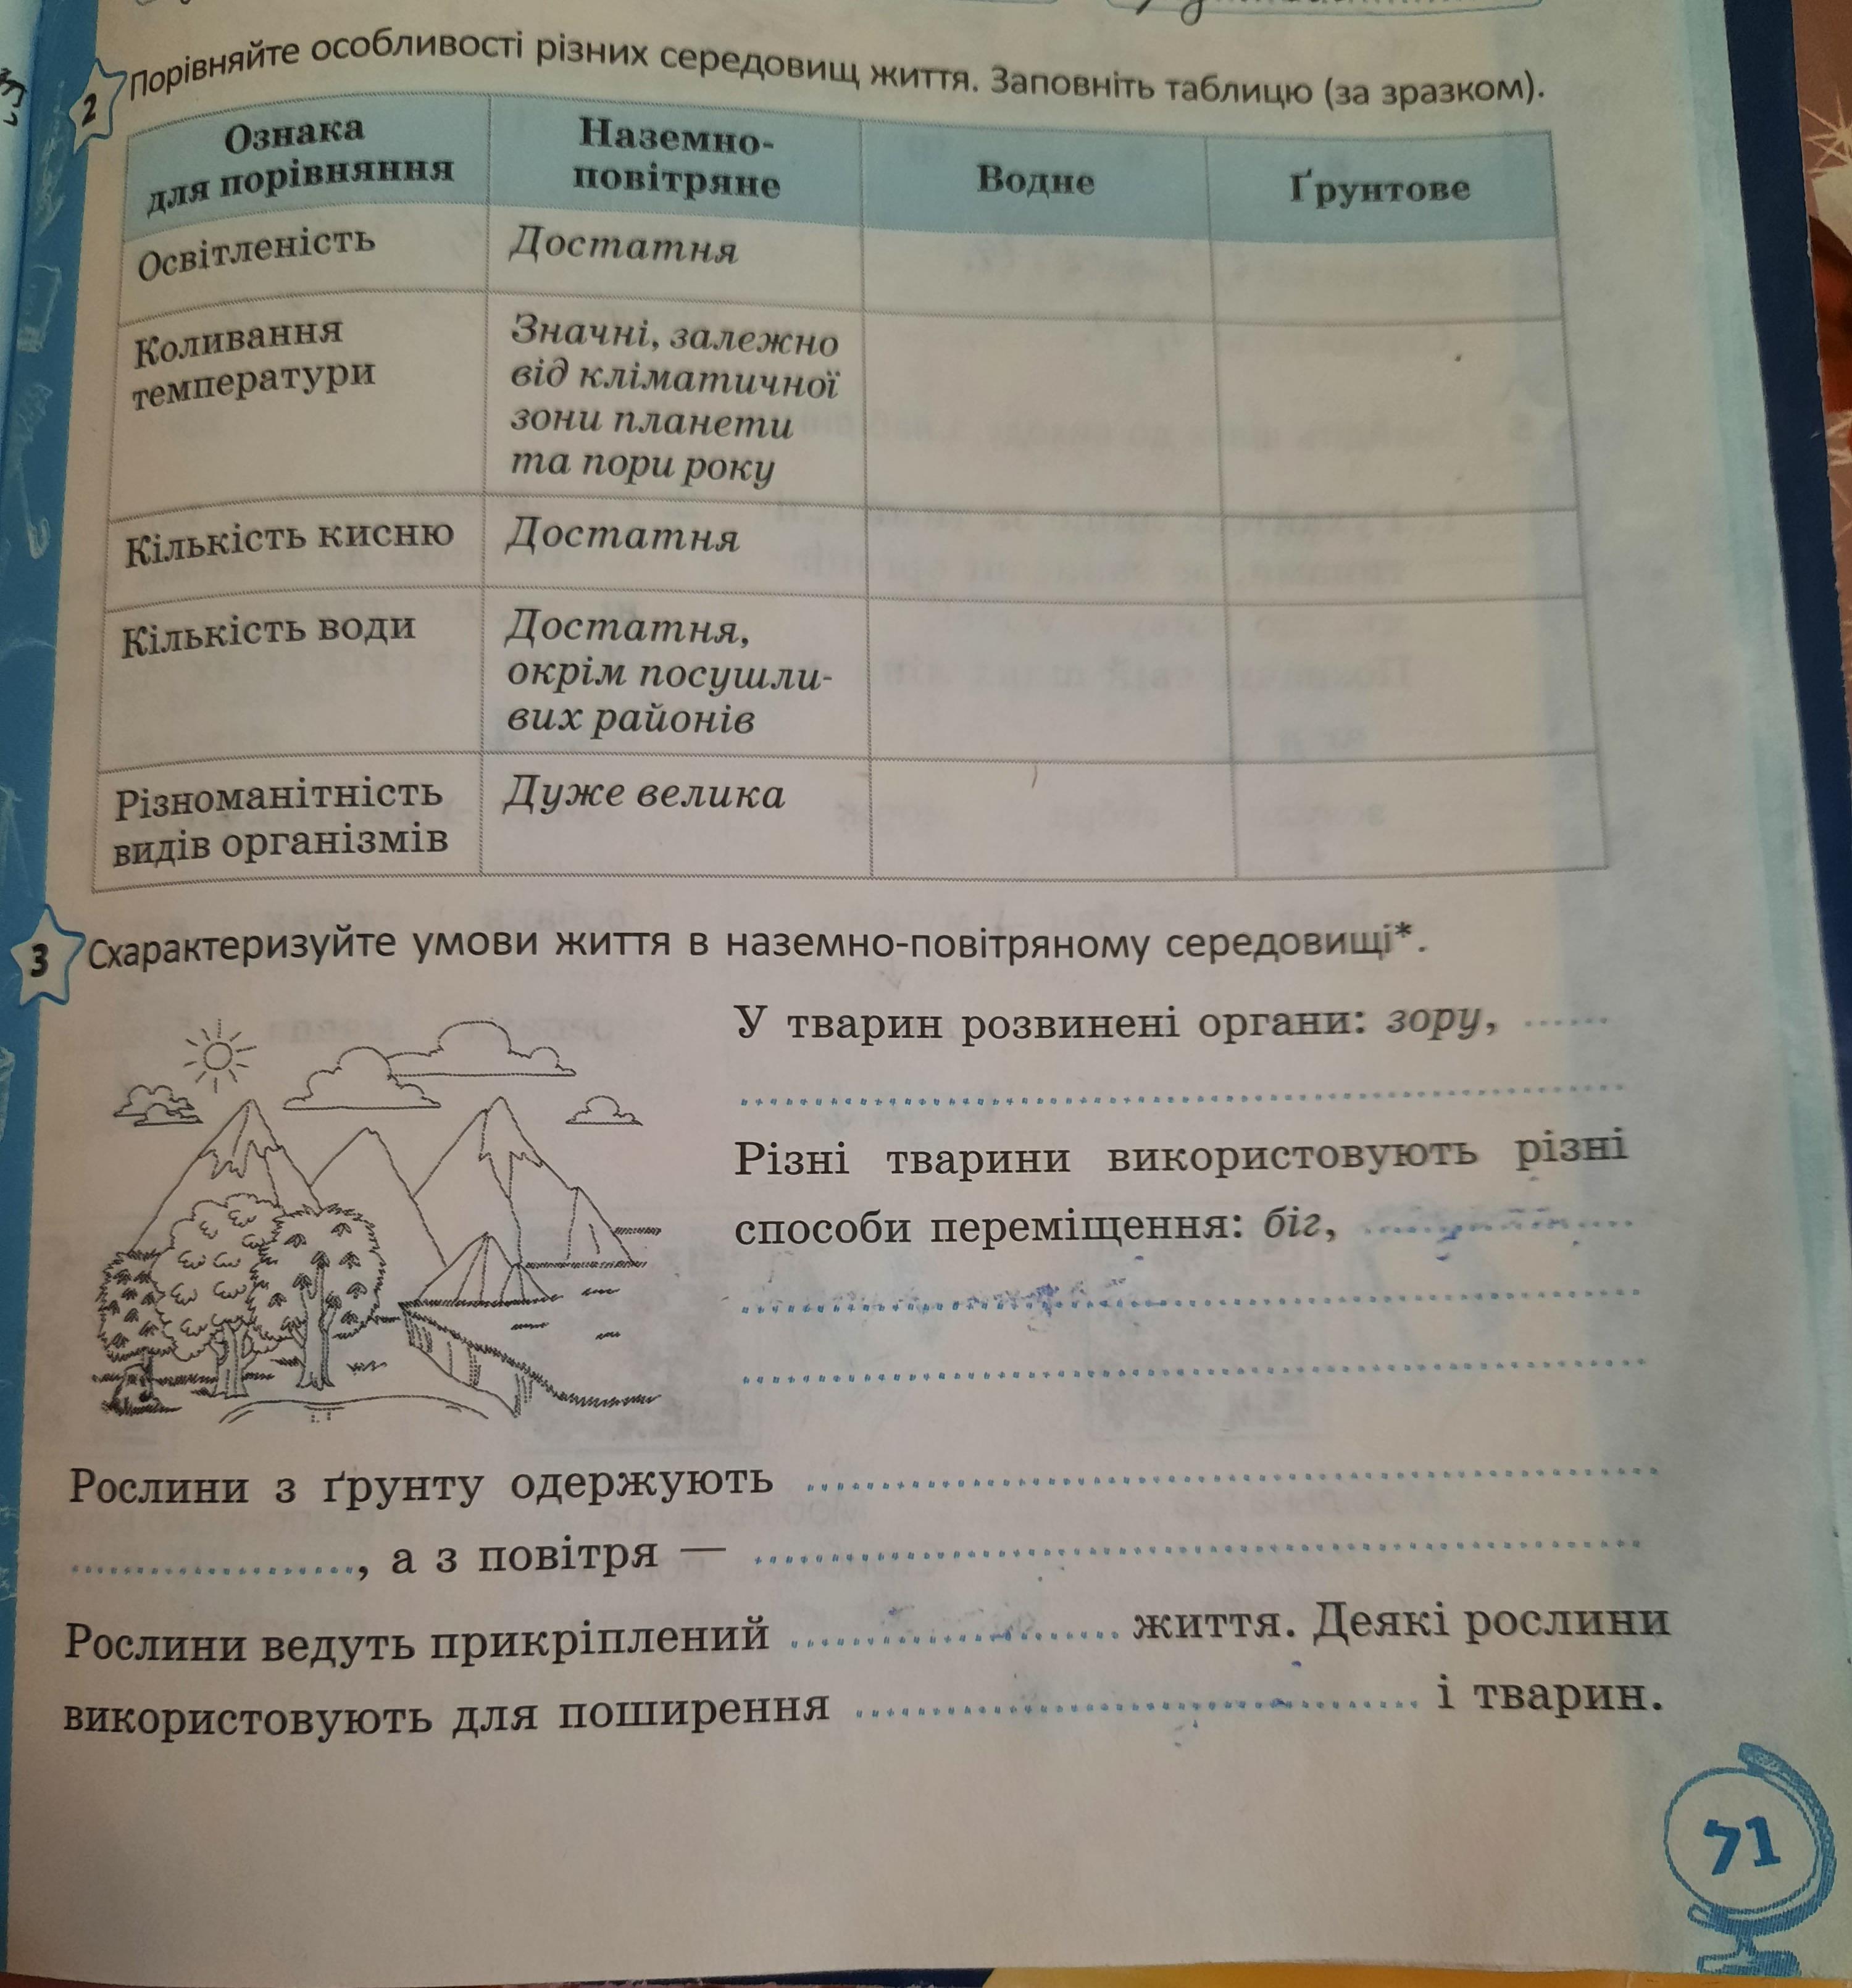 2 Порівняйте особливості різних середовищ життя. Заповніть таблицю (за зразком).
Ознака для порівняння Наземно-повітряне Водне Ґрунтове
Освітленість Достатня
Коливання Значні, залежно
температури від кліматичної
зони планети
та пори року
Кількість кисню Достатня
Кількість води Достатня,
окрім посушли-
вих районів
Різноманітність Дуже велика
видів організмів
3 Схарактеризуйте умови життя в наземно-повітряному середовищі*.
У тварин розвинені органи: зору,
Різні тварини використовують різні
способи переміщення: біг,
Рослини з ґрунту одержують
, а з повітря —
Рослини ведуть прикріплений життя. Деякі рослини
використовують для поширення і тварин.
71